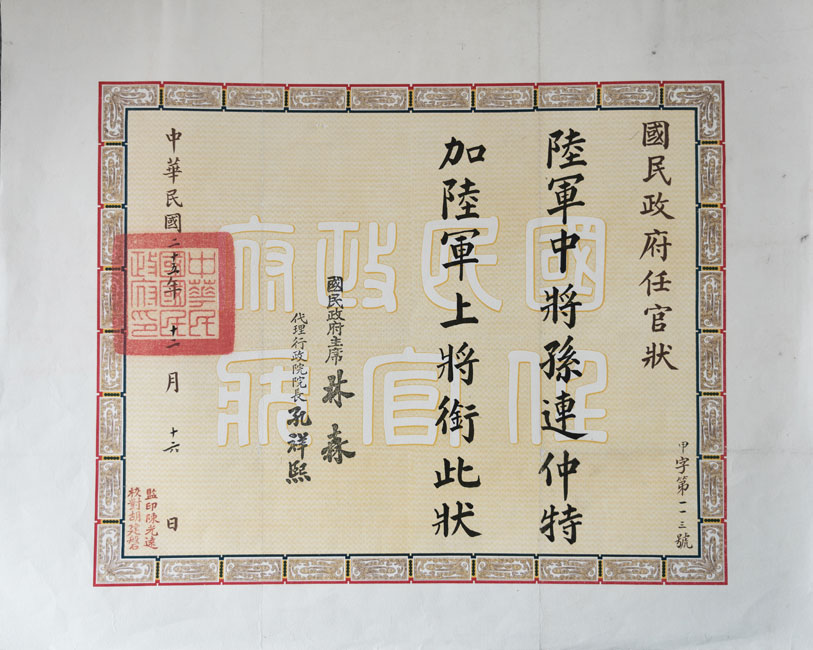 國民政府任官狀
甲字第一一三號
陸軍中將孫連仲特
加陸軍上將銜此狀
國民政府
任官狀
國民政府主席 林森
代理行政院院長 孔祥熙
中華民國二十五年十二月十六日
中華民
國國民
政府印
監印陳光遠
校對胡